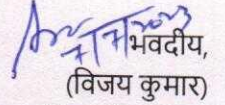 भवदीय,
(विजय कुमार)